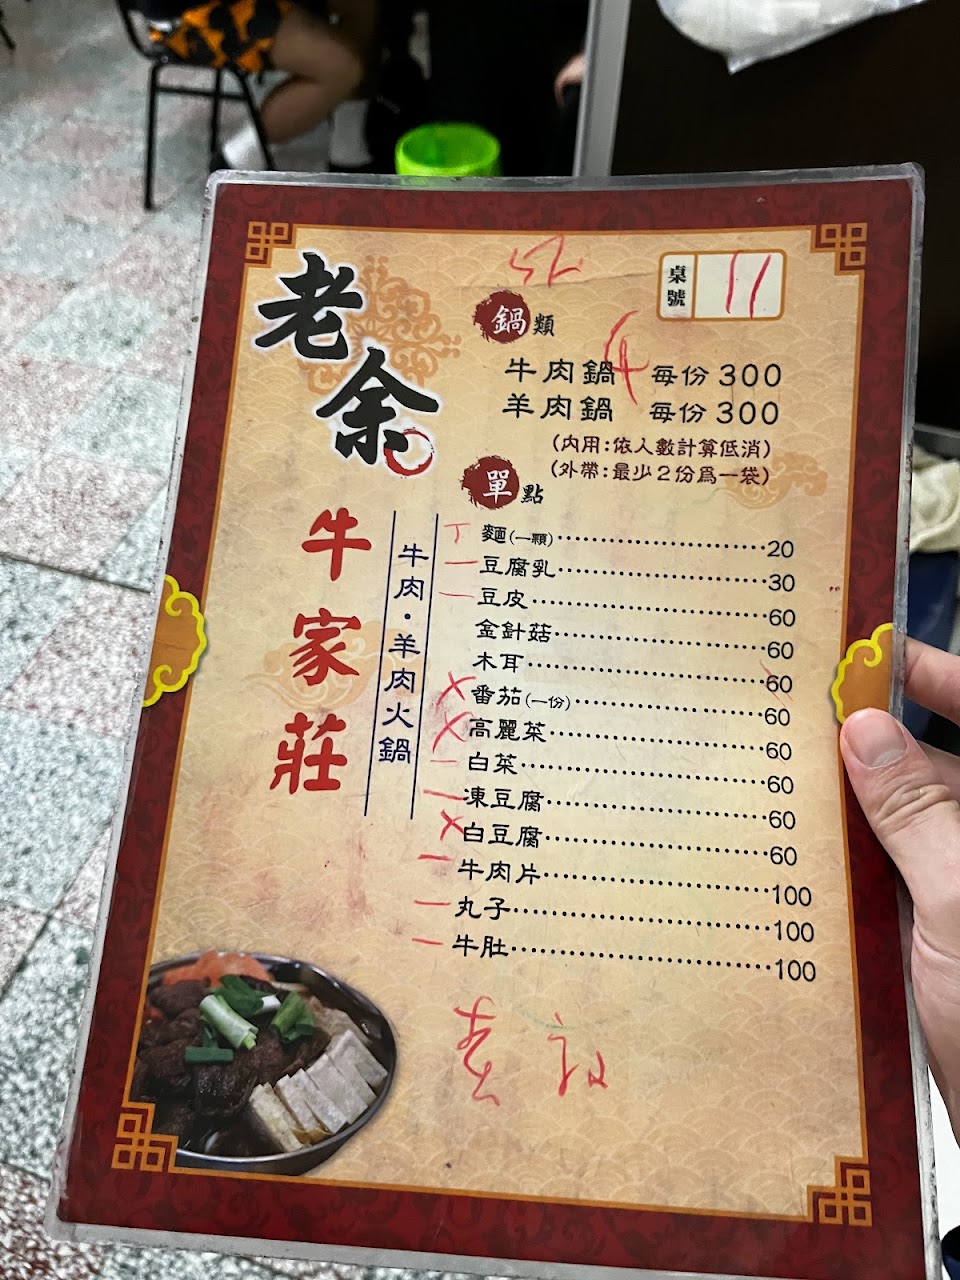 老余
牛家莊
牛肉・羊肉火鍋
桌號 11
鍋類
牛肉鍋 4 每份300
羊肉鍋 每份300
(內用:依人數計算低消)
(外帶:最少2份爲一袋)
單點
麵(一顆)························20
豆腐乳························30
豆皮························60
金針菇························60
木耳························60
番茄(一份)························60
高麗菜························60
白菜························60
凍豆腐························60
白豆腐························60
牛肉片························100
丸子························100
牛肚························100